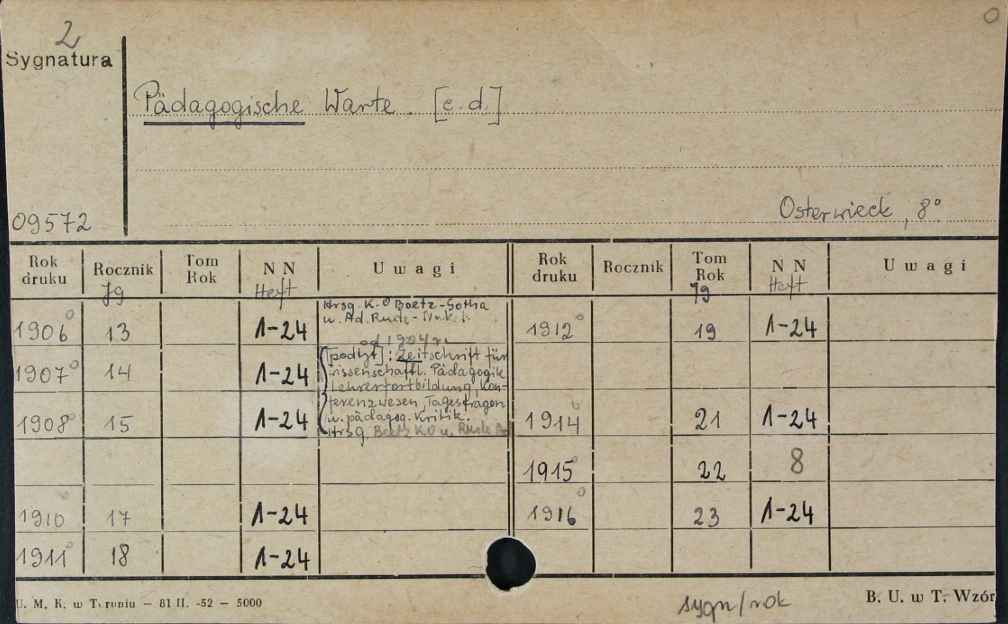 2
Sygnatura
Pädagogische Warte. [c.d.]
09572
Osterwieck, 8°
Rok druku Rocznik Tom Rok NN Uwagi Rok druku Rocznik Tom Rok NN Uwagi
Jg Heft Jg Heft
1906 13 1-24 Hrsg. K.O Beetz-Gotha 1912 19 1-24
u. Ad. Rude
od 1907 r.
1907 14 1-24 [podtyt]: Zeitschrift für
wissenschaftl. Pädagogik
Lehrerfortbildung, Kon-
ferenzwesen, Tagesfragen
1908 15 1-24 u. pädagog. Kritik. 1914 21 1-24
Hrsg. Beetz K.O u. Rude
1915 22 8
1910 17 1-24 1916 23 1-24
1911 18 1-24
U. M. K. w Toruniu — 81 II. -52 — 5000
sygn/rok
B. U. w T. Wzór